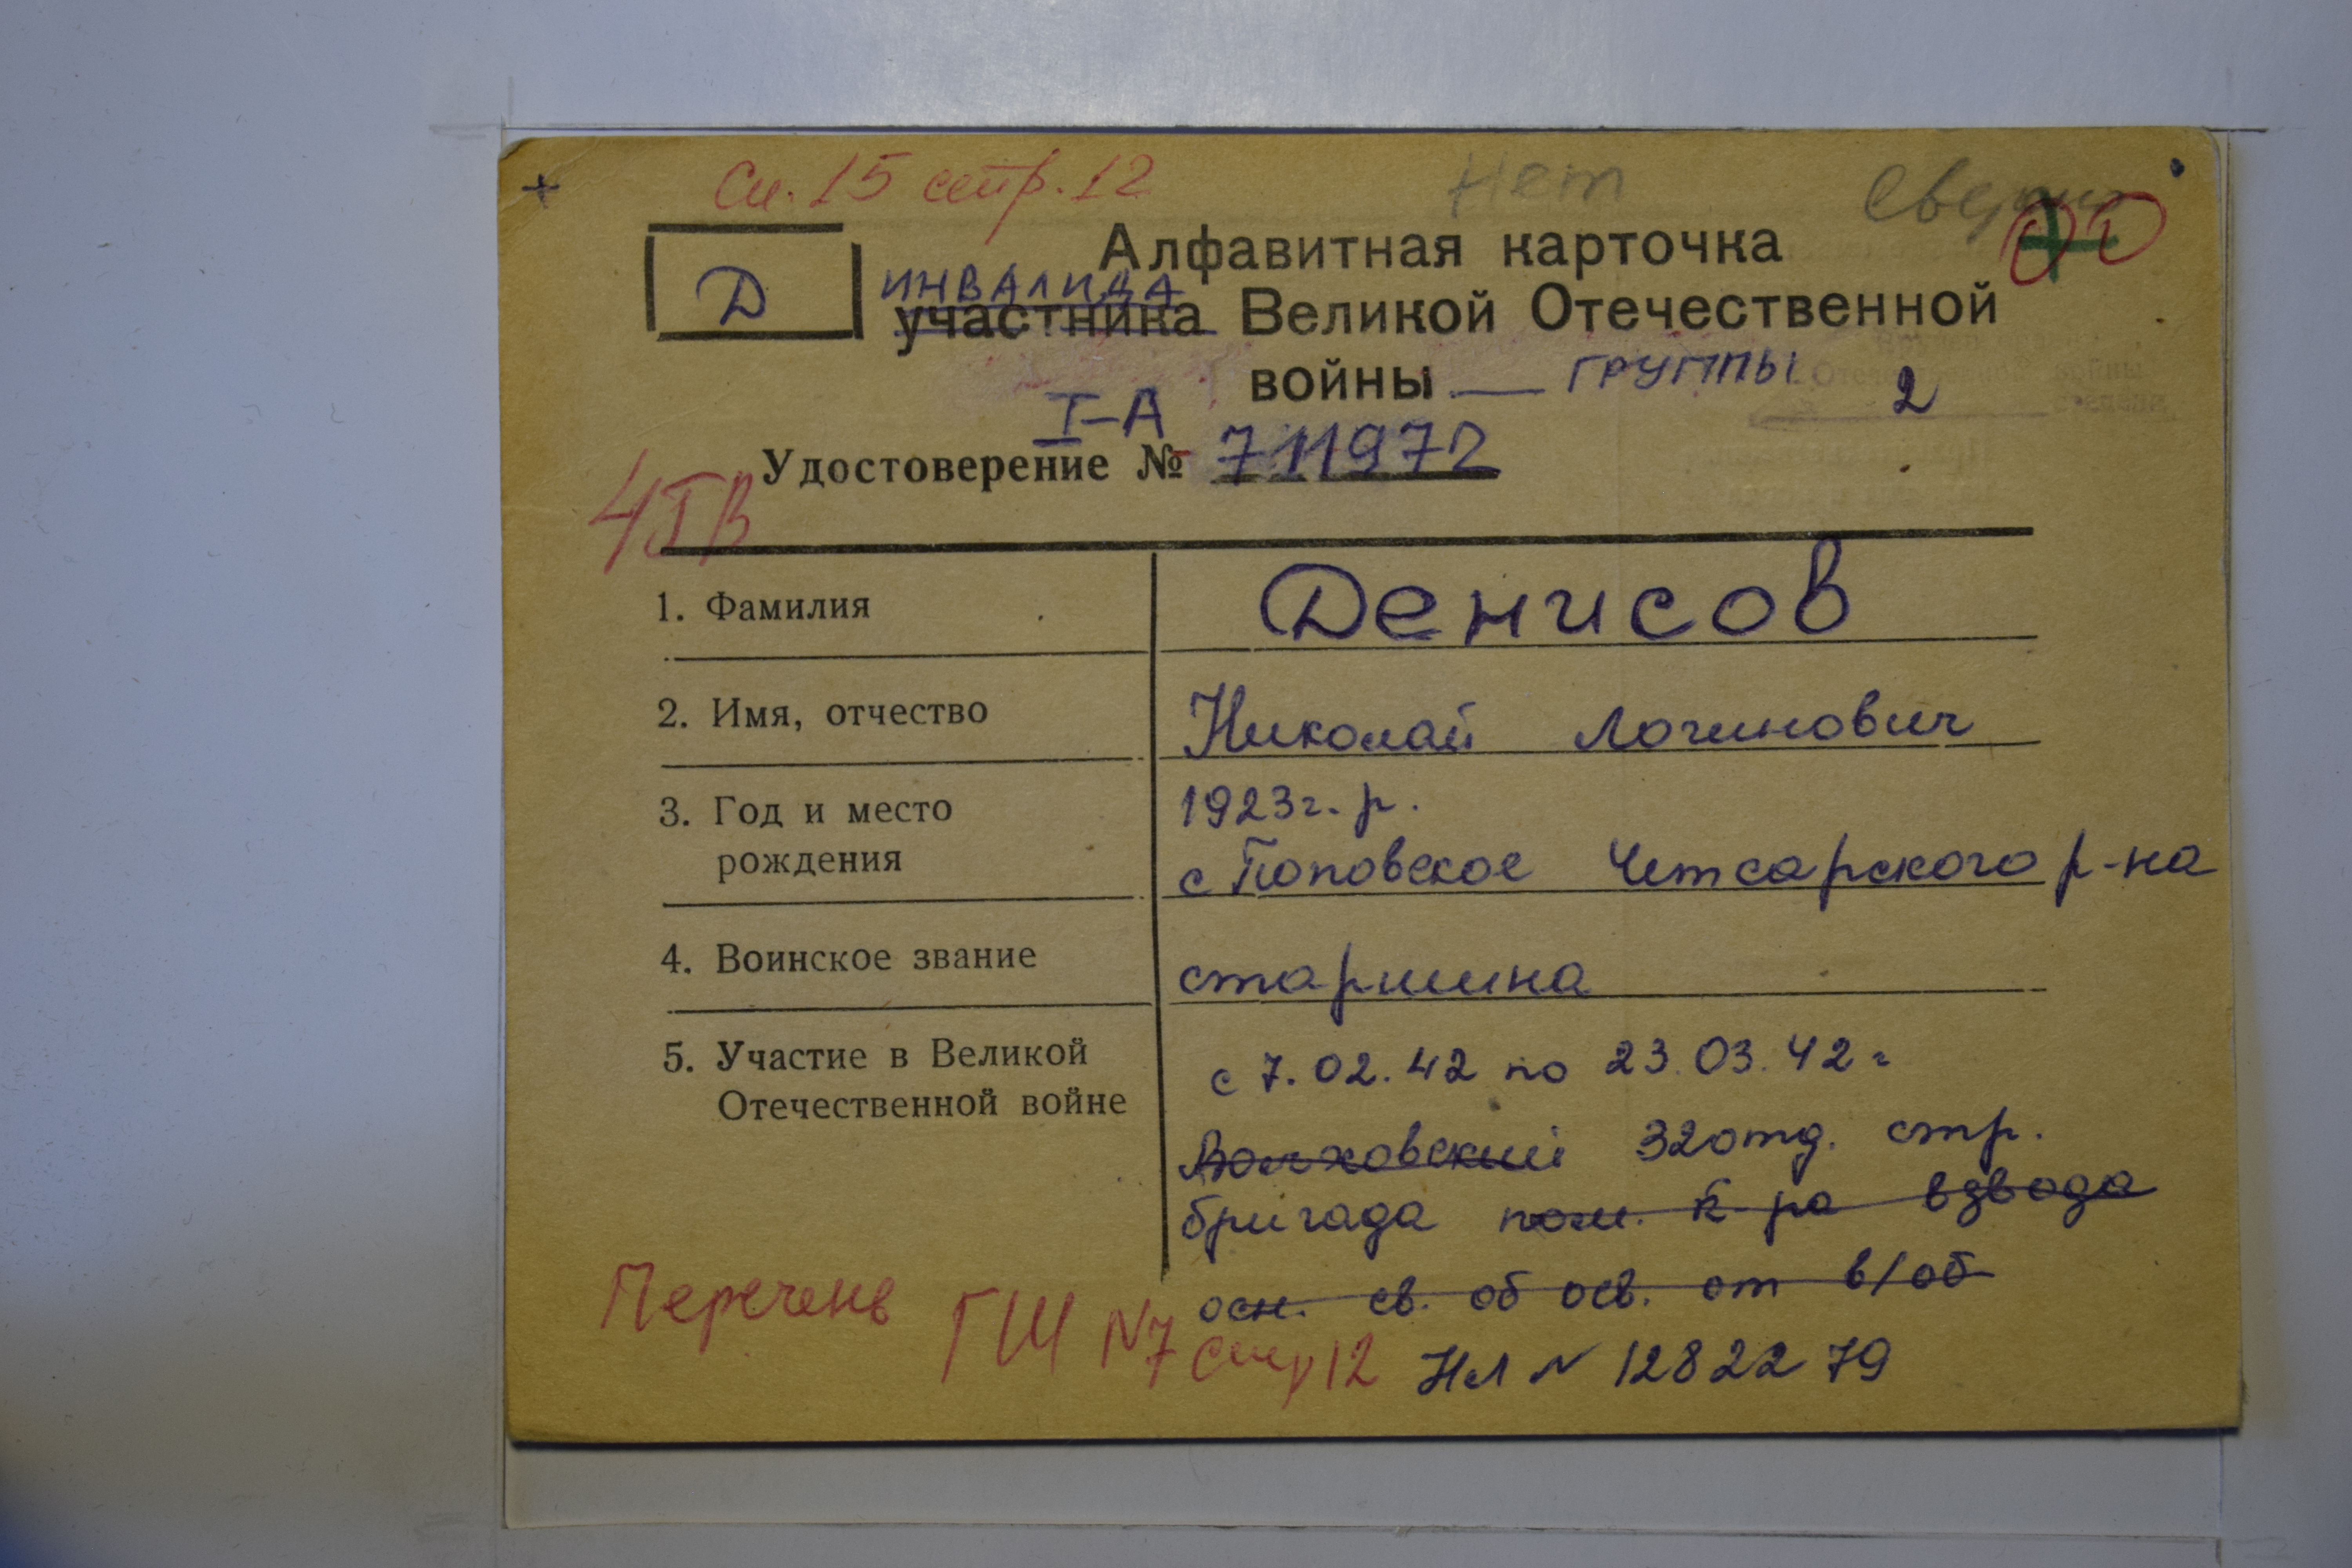 Сп. 15 стр. 12
Нет
Сверено
Д
Алфавитная карточка
ИНВАЛИДА
участника Великой Отечественной
войны — ГРУППЫ 2
I-А
Удостоверение № 711972
1. Фамилия
Денисов
2. Имя, отчество
Николай Логинович
3. Год и место
рождения
1923г. р.
с Поповское Четсарского р-на
4. Воинское звание
старшина
5. Участие в Великой
Отечественной войне
с 7.02.42 по 23.03.42 г
Волховский 32 отд. стр.
бригада пом. к-ра взвода
осн. св. об осв. от в/об
Перечень ГШ N7 стр 12
НЛ N 1282279